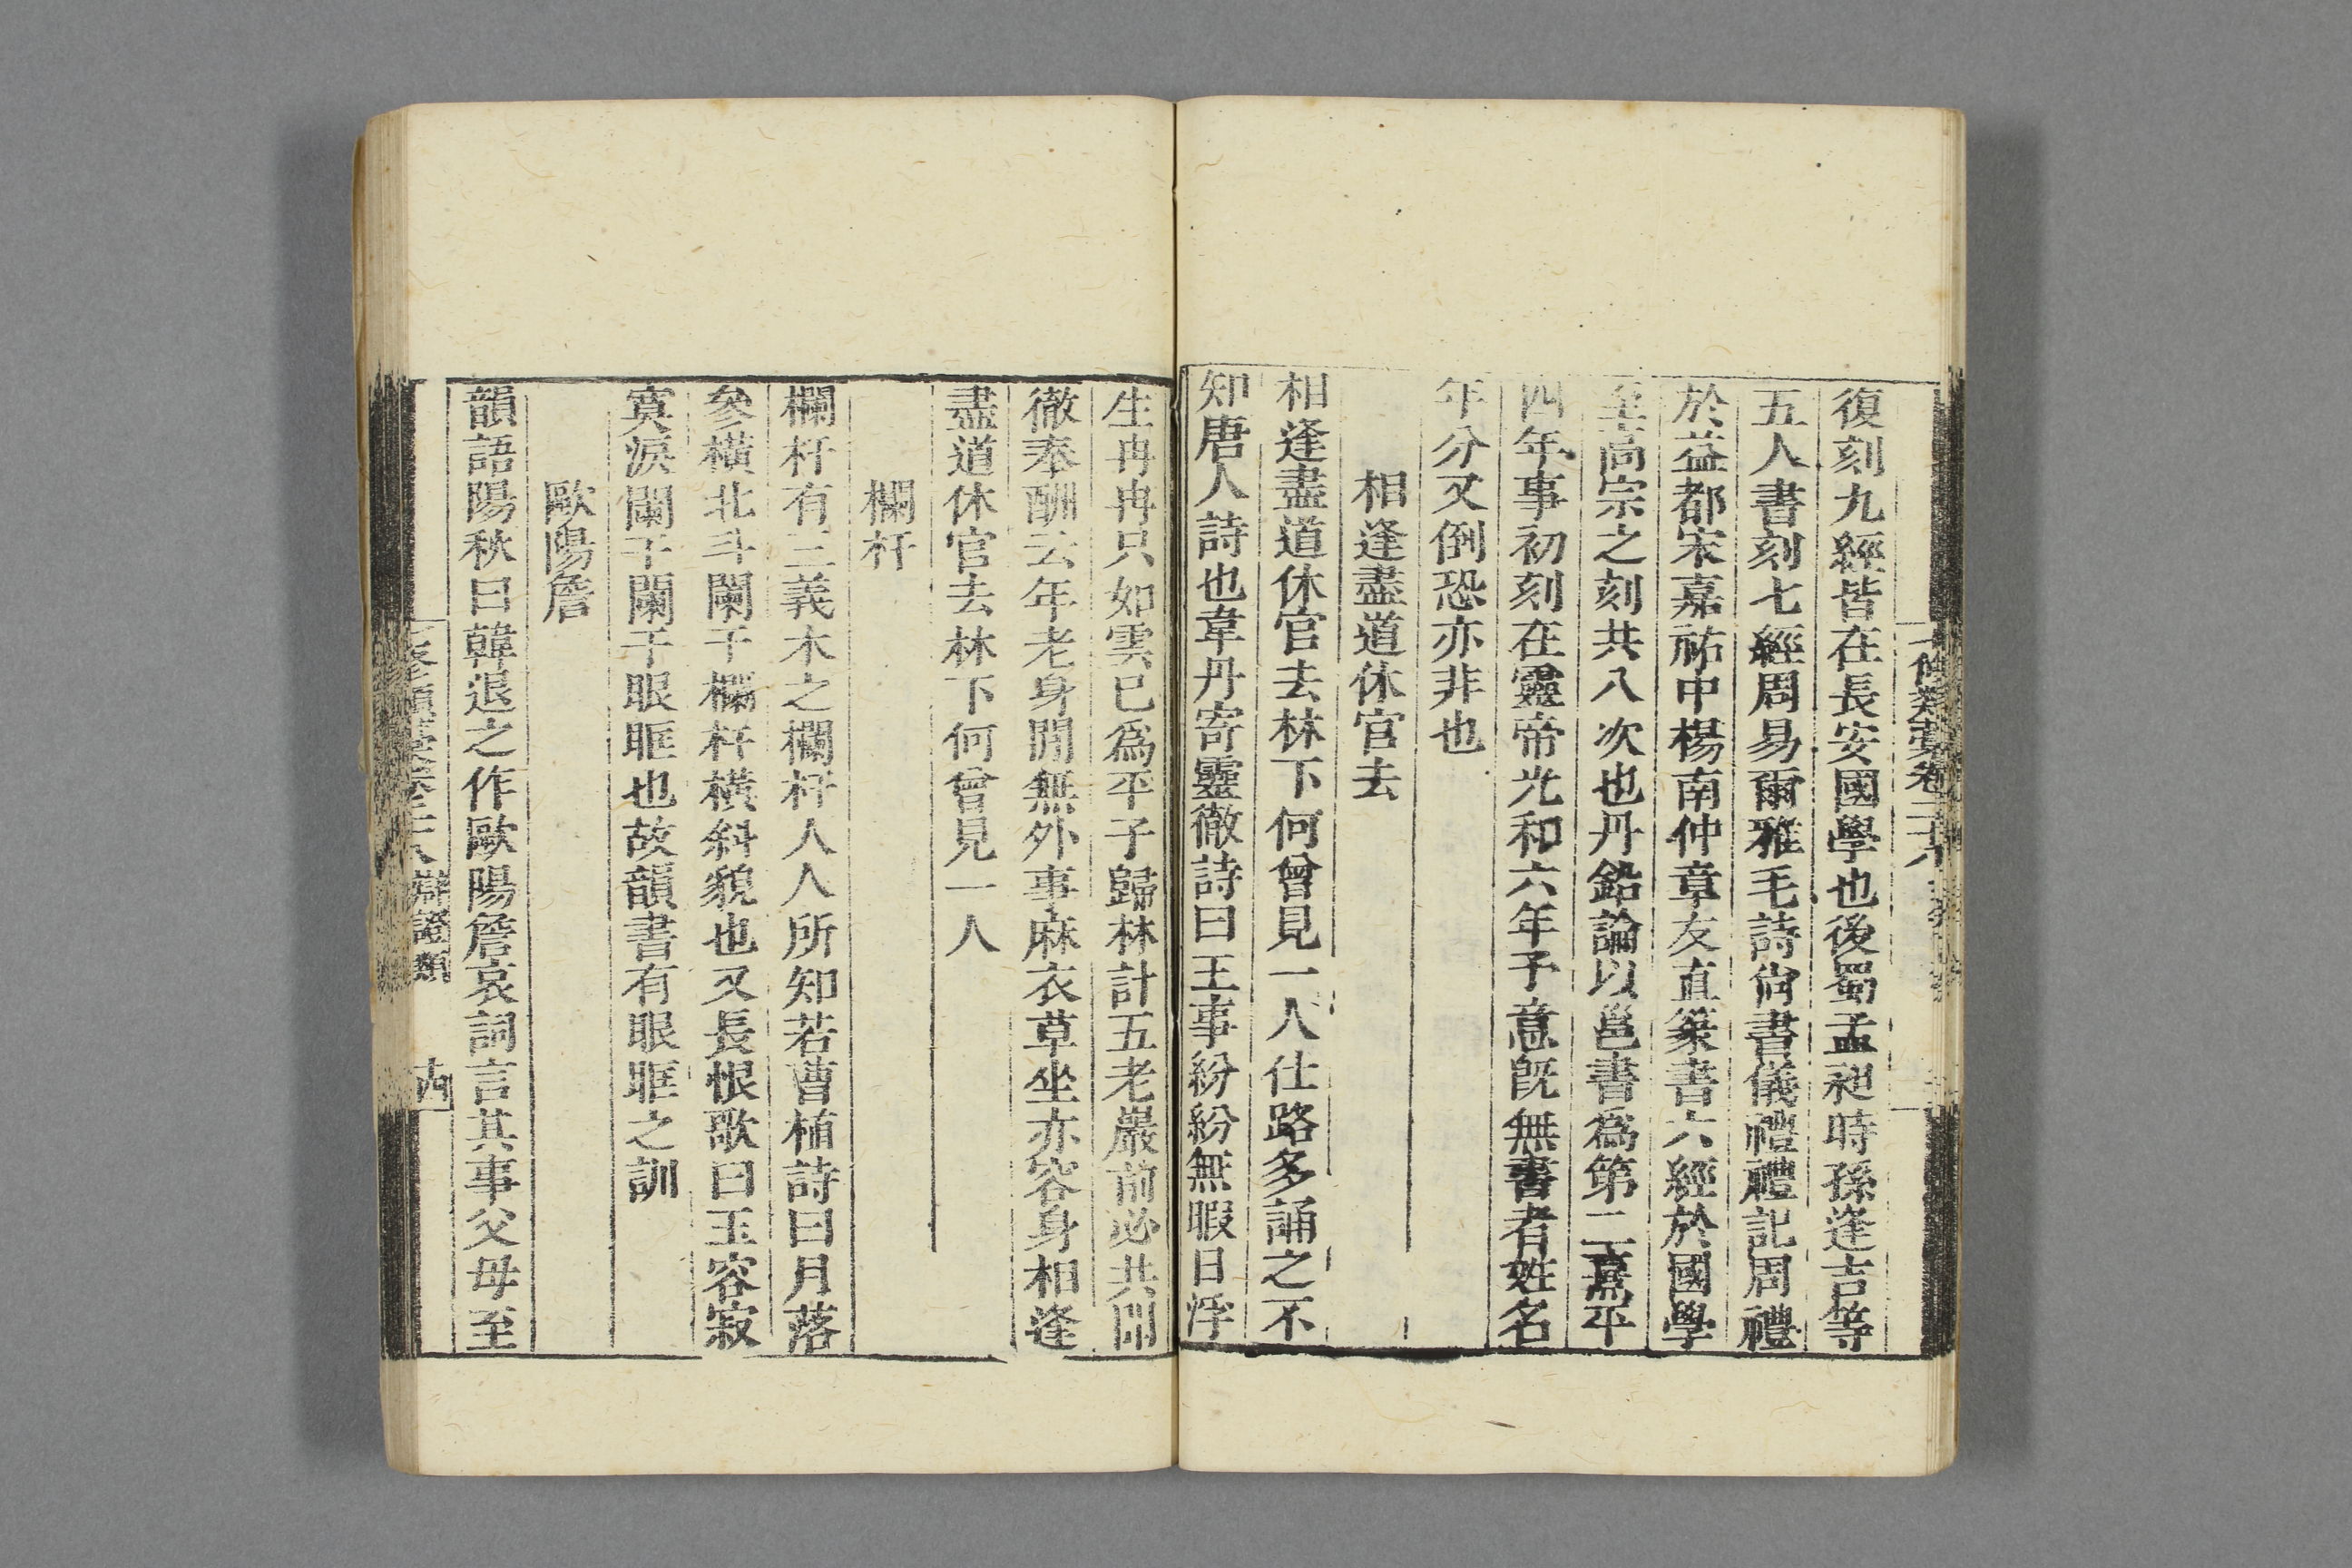 復刻九經皆在長安國學也後蜀孟昶時孫逢吉等
五人書刻七經周易爾雅毛詩尙書儀禮禮記周禮
於益都宋嘉祐中楊南仲章友直篆書六經於國學
至高宗之刻共八次也丹鉛論以邕書爲第二熹平
四年事初刻在靈帝光和六年予意旣無書者姓名
年分又倒恐亦非也
相逢盡道休官去
相逢盡道休官去林下何曾見一人仕路多誦之不
知唐人詩也韋丹寄靈徹詩曰王事紛紛無暇日浮
生冉冉只如雲已爲平子歸林計五老巖前必共聞
徹奉酬云年老身閒無外事麻衣草坐亦容身相逢
盡道休官去林下何曾見一人
欄杆
欄杆有三義木之欄杆人人所知若曹植詩曰月落
參橫北斗闌干欄杆橫斜貌也又長恨歌曰玉容寂
寞淚闌干闌干眼眶也故韻書有眼眶之訓
歐陽詹
韻語陽秋曰韓退之作歐陽詹哀詞言其事父母至
七修類藁卷二十八 辯證類
十四